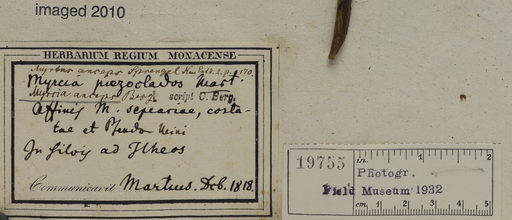 imaged 2010
HERBARIUM REGIUM MONACENSE
Myrtus anceps Sprengel Neu Entd. 2. p. 170.
Myrcia piezoclados Mart.
Myrcia anceps Berg! script O. Berg.
Affinis M. sepiariae, costa-
tae et Pseudo Mini
In Silvis ad Ilheos
Communicavit Martius. Dcb. 1818.
19755
in. 1 2
Photogr.
Field Museum 1932
cm. 1 2 3 4 5